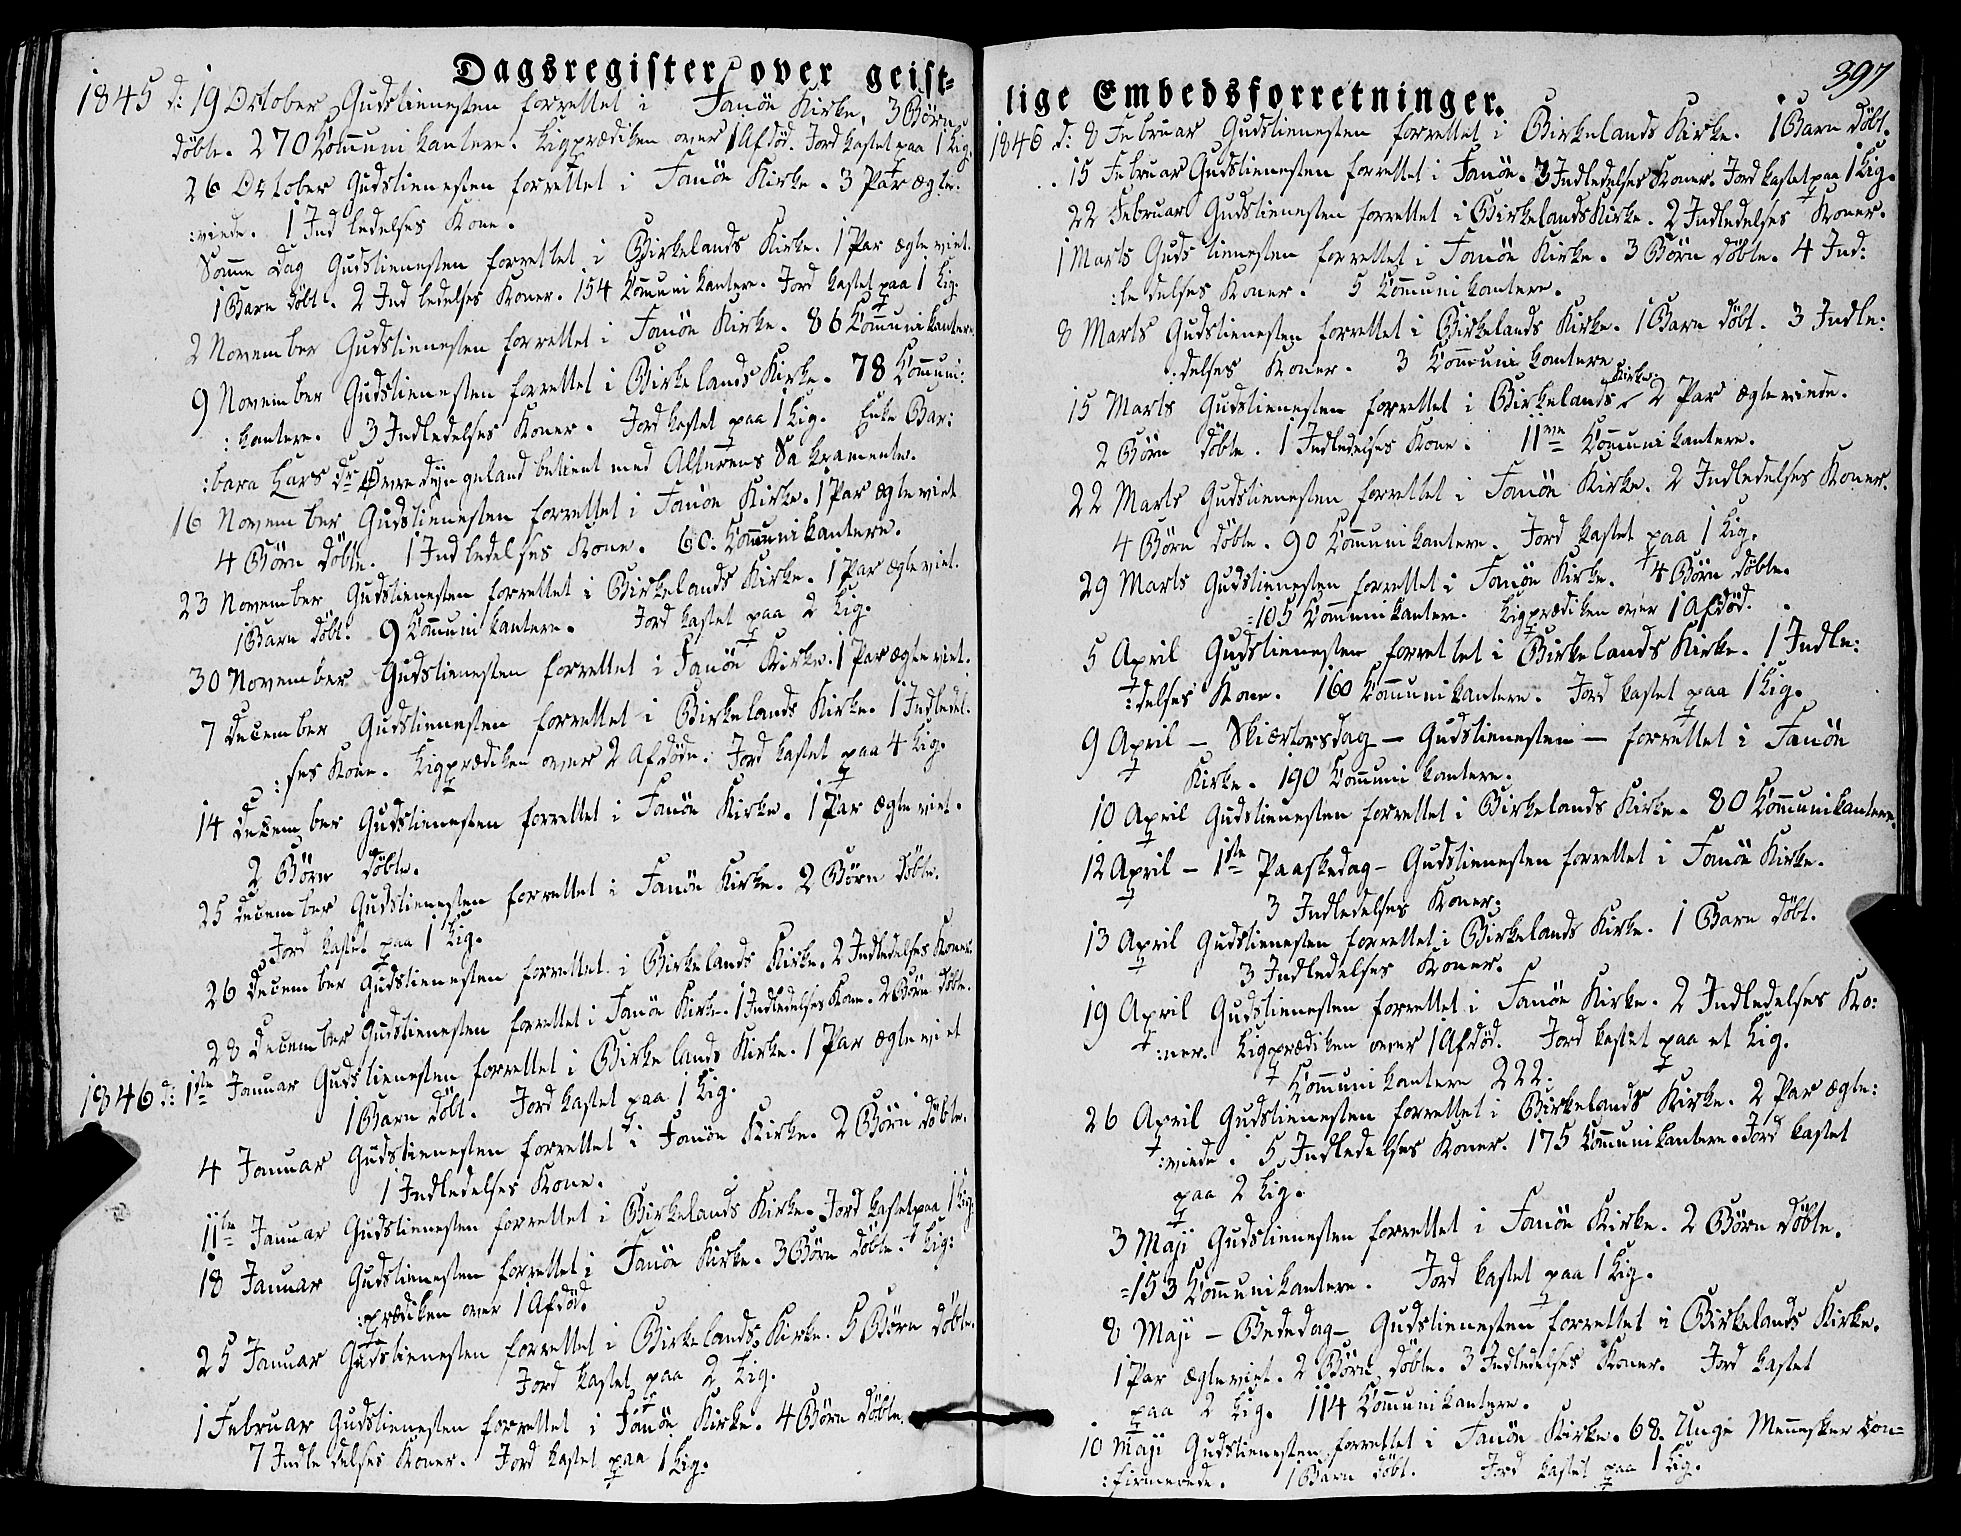 Dagsregister over geist=
1845 d: 19 October Gudstienesten forrettet i Fanöe Kirke, 3 Børn
døbte. 270 Communikantere. Ligprædiken over 1 Afdød. Jord kastet paa 1 Lig.
26 October Gudstienesten forrettet i Fanöe Kirke. 3 Par ægte:
:viede. 1 Indledelses Kone.
Samme Dag Gudstienesten forrettet i Birkelands Kirke. 1 Par ægteviet.
1 Barn døbt. 2 Indledelses Koner. 154 Communikantere. Jord kastet paa 1 Lig.
2 November Gudstienesten forrettet i Fanöe Kirke. 86 Communikantere.
9 November Gudstienesten forrettet i Birkelands Kirke. 78 Communi:
:kantere. 3 Indledelses Koner. Jord kastet paa 1 Lig. Enke Bar:
:bara Lars Dr betient med Alterens Sakramente.
16 November Gudstienesten forrettet i Fanöe Kirke. 1 Par ægteviet
4 Børn døbte. 1 Indledelses Kone. 60. Communikantere.
23 November Gudstienesten forrettet i Birkelands Kirke. 1 Par ægteviet.
1 Barn døbt. 9 Communikantere. Jord kastet paa 2 Lig.
30 November Gudstienesten forrettet i Fanöe Kirke. 1 Par ægteviet.
7 December Gudstienesten forrettet i Birkelands Kirke. 1 Indledel:
:ses Kone. Ligprædiken over 2 Afdøde. Jord kastet paa 4 Lig.
14 December Gudstienesten forrettet i Fanöe Kirke. 1 Par ægteviet.
2 Børn døbte.
25 December Gudstienesten forrettet i Fanöe Kirke. 2 Børn døbte.
Jord kastet paa 1 Lig.
26 December Gudstienesten forrettet i Birkelands Kirke. 2 Indledelses Koner.
28 December Gudstienesten forrettet i Fanöe Kirke. 1 Indledelses Kone. 2 Børn døbte.
1846 d: 1ste Januar Gudstienesten forrettet i Birkelands Kirke. 1 Par ægteviet
1 Barn døbt. Jord kastet paa 1 Lig.
4 Januar Gudstienesten forrettet i Fanöe Kirke. 2 Børn døbte.
1 Indledelses Kone.
11te Januar Gudstienesten forrettet i Birkelands Kirke. Jord kastet paa 1 Lig.
18 Januar Gudstienesten forrettet i Fanöe Kirke. 3 Børn døbte. Lig:
:prædiken over 1 Afdød.
25 Januar Gudstienesten forrettet i Birkelands Kirke. 5 Børn døbte.
Jord kastet paa 2 Lig.
1 Februar Gudstienesten forrettet i Fanöe Kirke. 4 Børn døbte.
7 Indledelses Koner. Jord kastet paa 1 Lig.
397
lige Embedsforretninger.
1846 d: 8 Februar Gudstienesten forrettet i Birkelands Kirke. 1 Barn døbt.
15 Februar Gudstienesten forrettet i Fanöe. 3 Indledelses Koner. Jord kastet paa 1 Lig.
22 Februar Gudstienesten forrettet i Birkelands Kirke. 2 Indledelses Koner.
1 Marts Gudstienesten forrettet i Fanöe Kirke. 3 Børn døbte. 4 Ind:
:ledelses Koner. 5 Communikantere.
8 Marts Gudstienesten forrettet i Birkelands Kirke. 1 Barn døbt. 3 Indle:
:delses Koner. 3 Communikantere
15 Marts Gudstienesten forrettet i Birkelands Kirke. 2 Par ægteviede.
2 Børn døbte. 1 Indledelses Kone. 11ve Communikantere.
22 Marts Gudstienesten forrettet i Fanöe Kirke. 2 Indledelses Koner.
4 Børn døbte. 90 Communikantere. Jord kastet paa 1 Lig.
29 Marts Gudstienesten forrettet i Fanöe Kirke. 4 Børn døbte.
=105 Communikantere. Ligprædiken over 1 Afdød.
5 April Gudstienesten forrettet i Birkelands Kirke. 1 Indle:
:delses Kone. 160 Communikantere. Jord kastet paa 1 Lig.
9 April – Skiærtorsdag – Gudstienesten – forrettet i Fanöe
Kirke. 190 Communikantere.
10 April Gudstienesten forrettet i Birkelands Kirke. 80 Communikantere.
12 April – 1ste Paaskedag – Gudstienesten forrettet i Fanöe Kirke.
3 Indledelses Koner.
13 April Gudstienesten forrettet i Birkelands Kirke. 1 Barn døbt.
3 Indledelses Koner.
19 April Gudstienesten forrettet i Fanöe Kirke. 2 Indledelses Ko:
:ner. Ligprædiken over 1 Afdød. Jord kastet paa et Lig.
Communikantere 222.
26 April Gudstienesten forrettet i Birkelands Kirke. 2 Par ægte:
:viede. 5 Indledelses Koner. 175 Communikantere. Jord kastet
paa 2 Lig.
3 Maji Gudstienesten forrettet i Fanöe Kirke. 2 Børn døbte.
=153 Communikantere. Jord kastet paa 1 Lig.
8 Maji – Bededag – Gudstienesten forrettet i Birkelands Kirke.
1 Par ægteviet. 2 Børn døbte. 3 Indledelses Koner. Jord kastet
paa 2 Lig. 114 Communikantere.
10 Maji Gudstienesten forrettet i Fanöe Kirke. 68 Unge Mennesker Con=
:firmerede. 1 Barn døbt. Jord kastet paa 1 Lig.